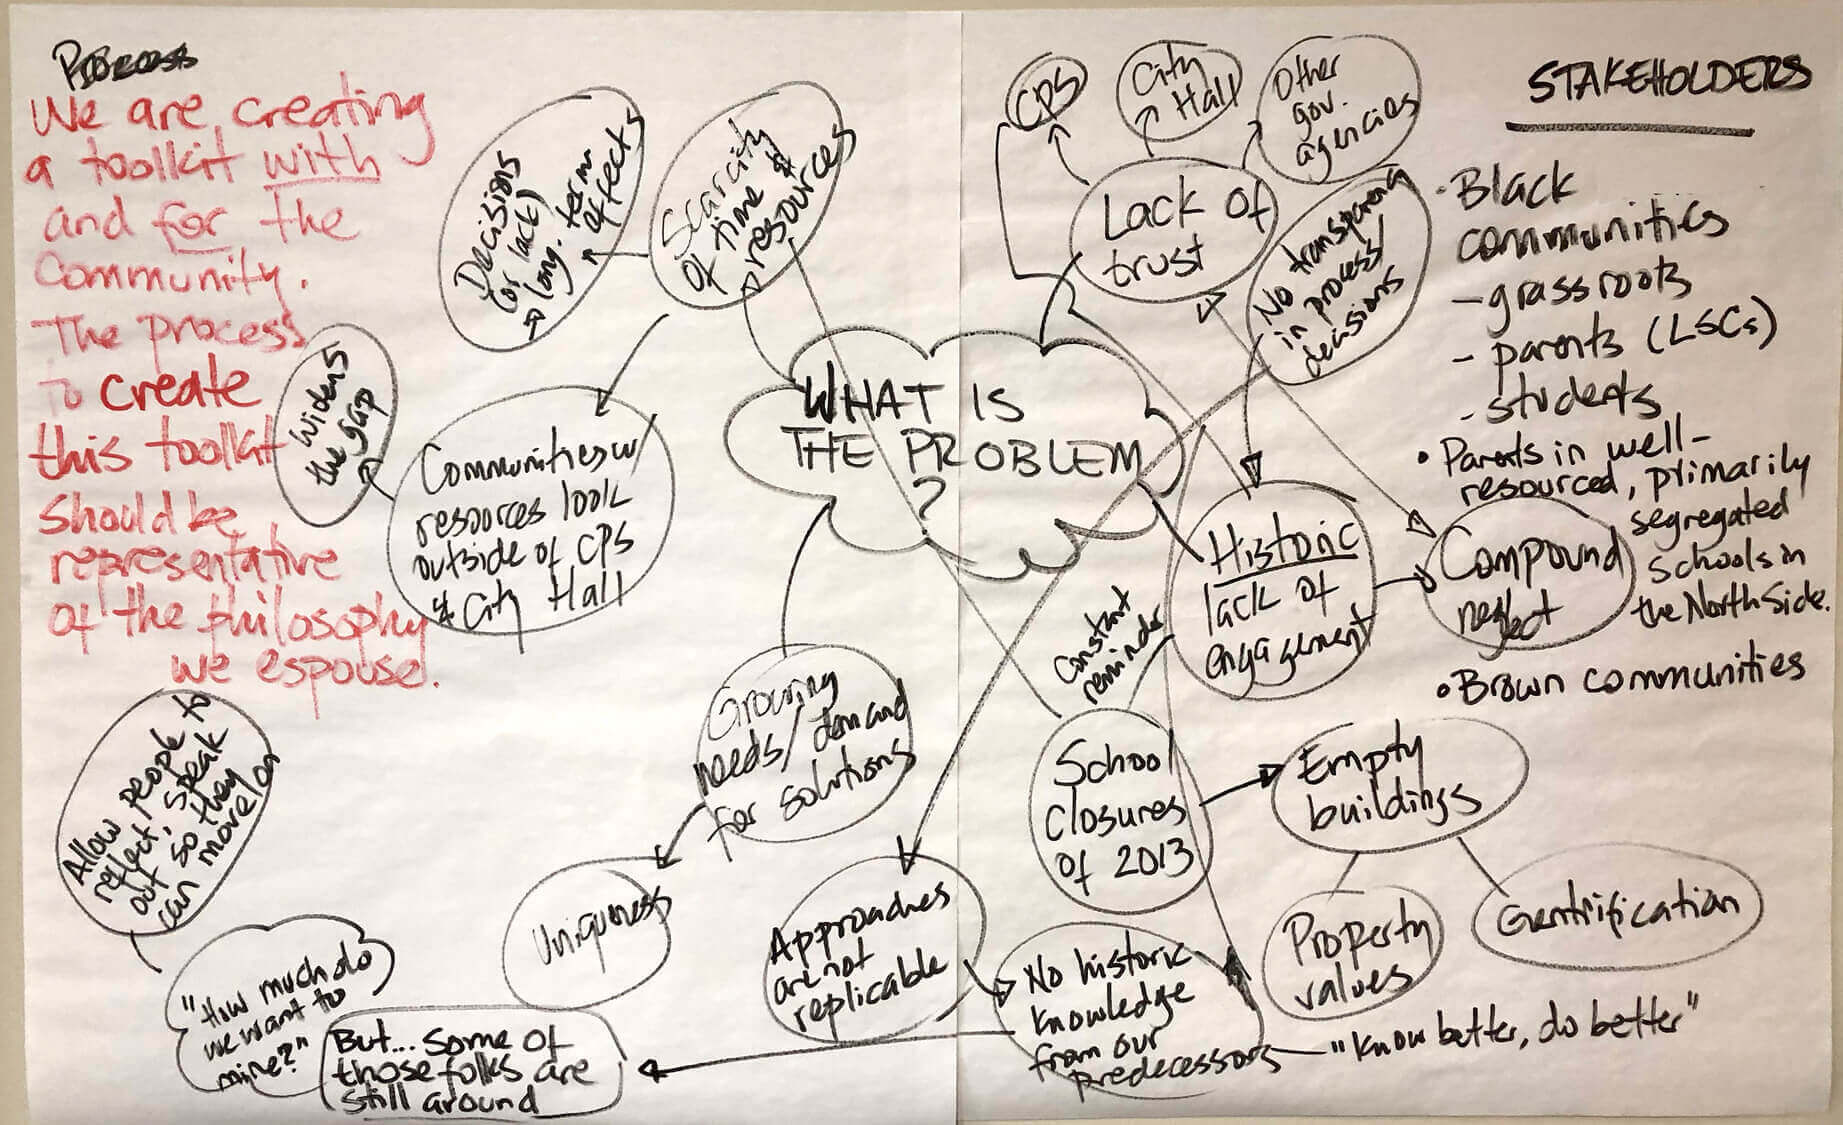 Process
We are creating
a toolkit with
and for the
community.
The process
to create
this toolkit
should be
representative
of the philosophy
we espouse.
Decisions
(or lack)
long-term
effects
Scarcity
of time &
resources
Widens
the gap
Communities w/
resources look
outside of CPS
& City Hall
WHAT IS
THE PROBLEM
?
CPS
City
Hall
Other
gov.
agencies
Lack of
trust
No transparency
in process/
decisions
Historic
lack of
engagement
Compound
neglect
Constant
reminder
School
closures
of 2013
Empty
buildings
Property
values
Gentrification
Growing
needs/demand
for solutions
Uniqueness
Approaches
are not
replicable
No historic
knowledge
from our
predecessors
"Know better, do better"
But... some of
those folks are
still around
"How much do
we want to
mine?"
Allow people to
reflect, speak
out so they
can move/on
STAKEHOLDERS
• Black
communities
- grassroots
- parents (LSCs)
- students
• Parents in well-
resourced, primarily
segregated
schools in
the North Side.
• Brown communities